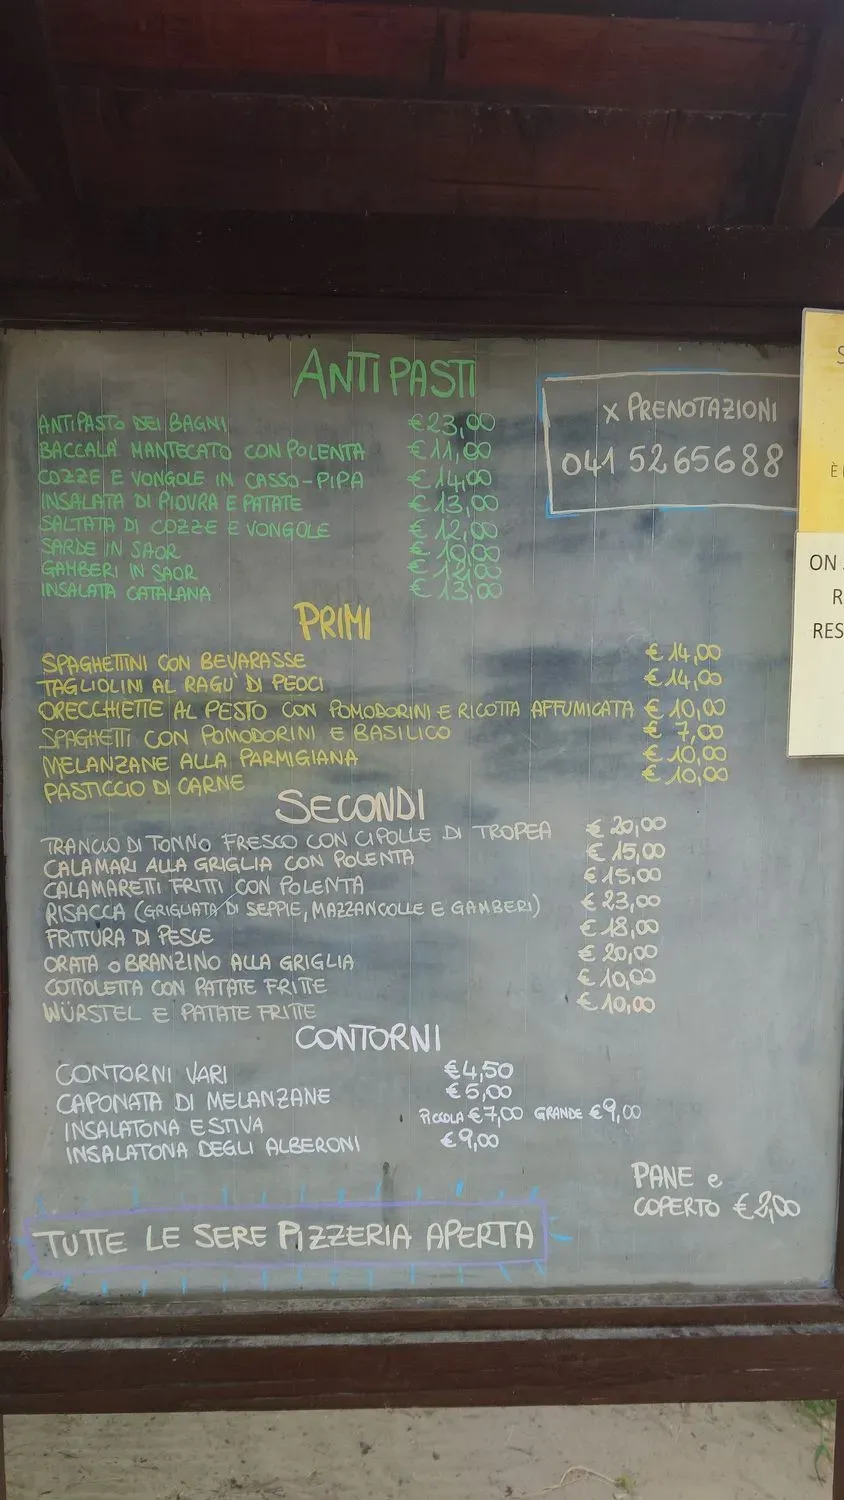 ANTIPASTI
ANTIPASTO DEI BAGNI €23,00
BACCALA' MANTECATO CON POLENTA €11,00
COZZE E VONGOLE IN CASSO-PIPA €14,00
INSALATA DI PIOVRA E PATATE €13,00
SALTATA DI COZZE E VONGOLE €12,00
SARDE IN SAOR €10,00
GAMBERI IN SAOR €12,00
INSALATA CATALANA €13,00
X PRENOTAZIONI
041 5265688
PRIMI
SPAGHETTINI CON BEVARASSE €14,00
TAGLIOLINI AL RAGU' DI PEOCI €14,00
ORECCHIETTE AL PESTO CON POMODORINI E RICOTTA AFFUMICATA €10,00
SPAGHETTI CON POMODORINI E BASILICO €7,00
MELANZANE ALLA PARMIGIANA €10,00
PASTICCIO DI CARNE €10,00
SECONDI
TRANCIO DI TONNO FRESCO CON CIPOLLE DI TROPEA €20,00
CALAMARI ALLA GRIGLIA CON POLENTA €15,00
CALAMARETTI FRITTI CON POLENTA €15,00
RISACCA (GRIGLIATA DI SEPPIE, MAZZANCOLLE E GAMBERI) €23,00
FRITTURA DI PESCE €18,00
ORATA o BRANZINO ALLA GRIGLIA €20,00
COTTOLETTA CON PATATE FRITTE €10,00
WÜRSTEL E PATATE FRITTE €10,00
CONTORNI
CONTORNI VARI €4,50
CAPONATA DI MELANZANE €5,00
INSALATONA ESTIVA PICCOLA €7,00 GRANDE €9,00
INSALATONA DEGLI ALBERONI €9,00
PANE e
COPERTO €2,00
TUTTE LE SERE PIZZERIA APERTA
S
È
ON
R
RES